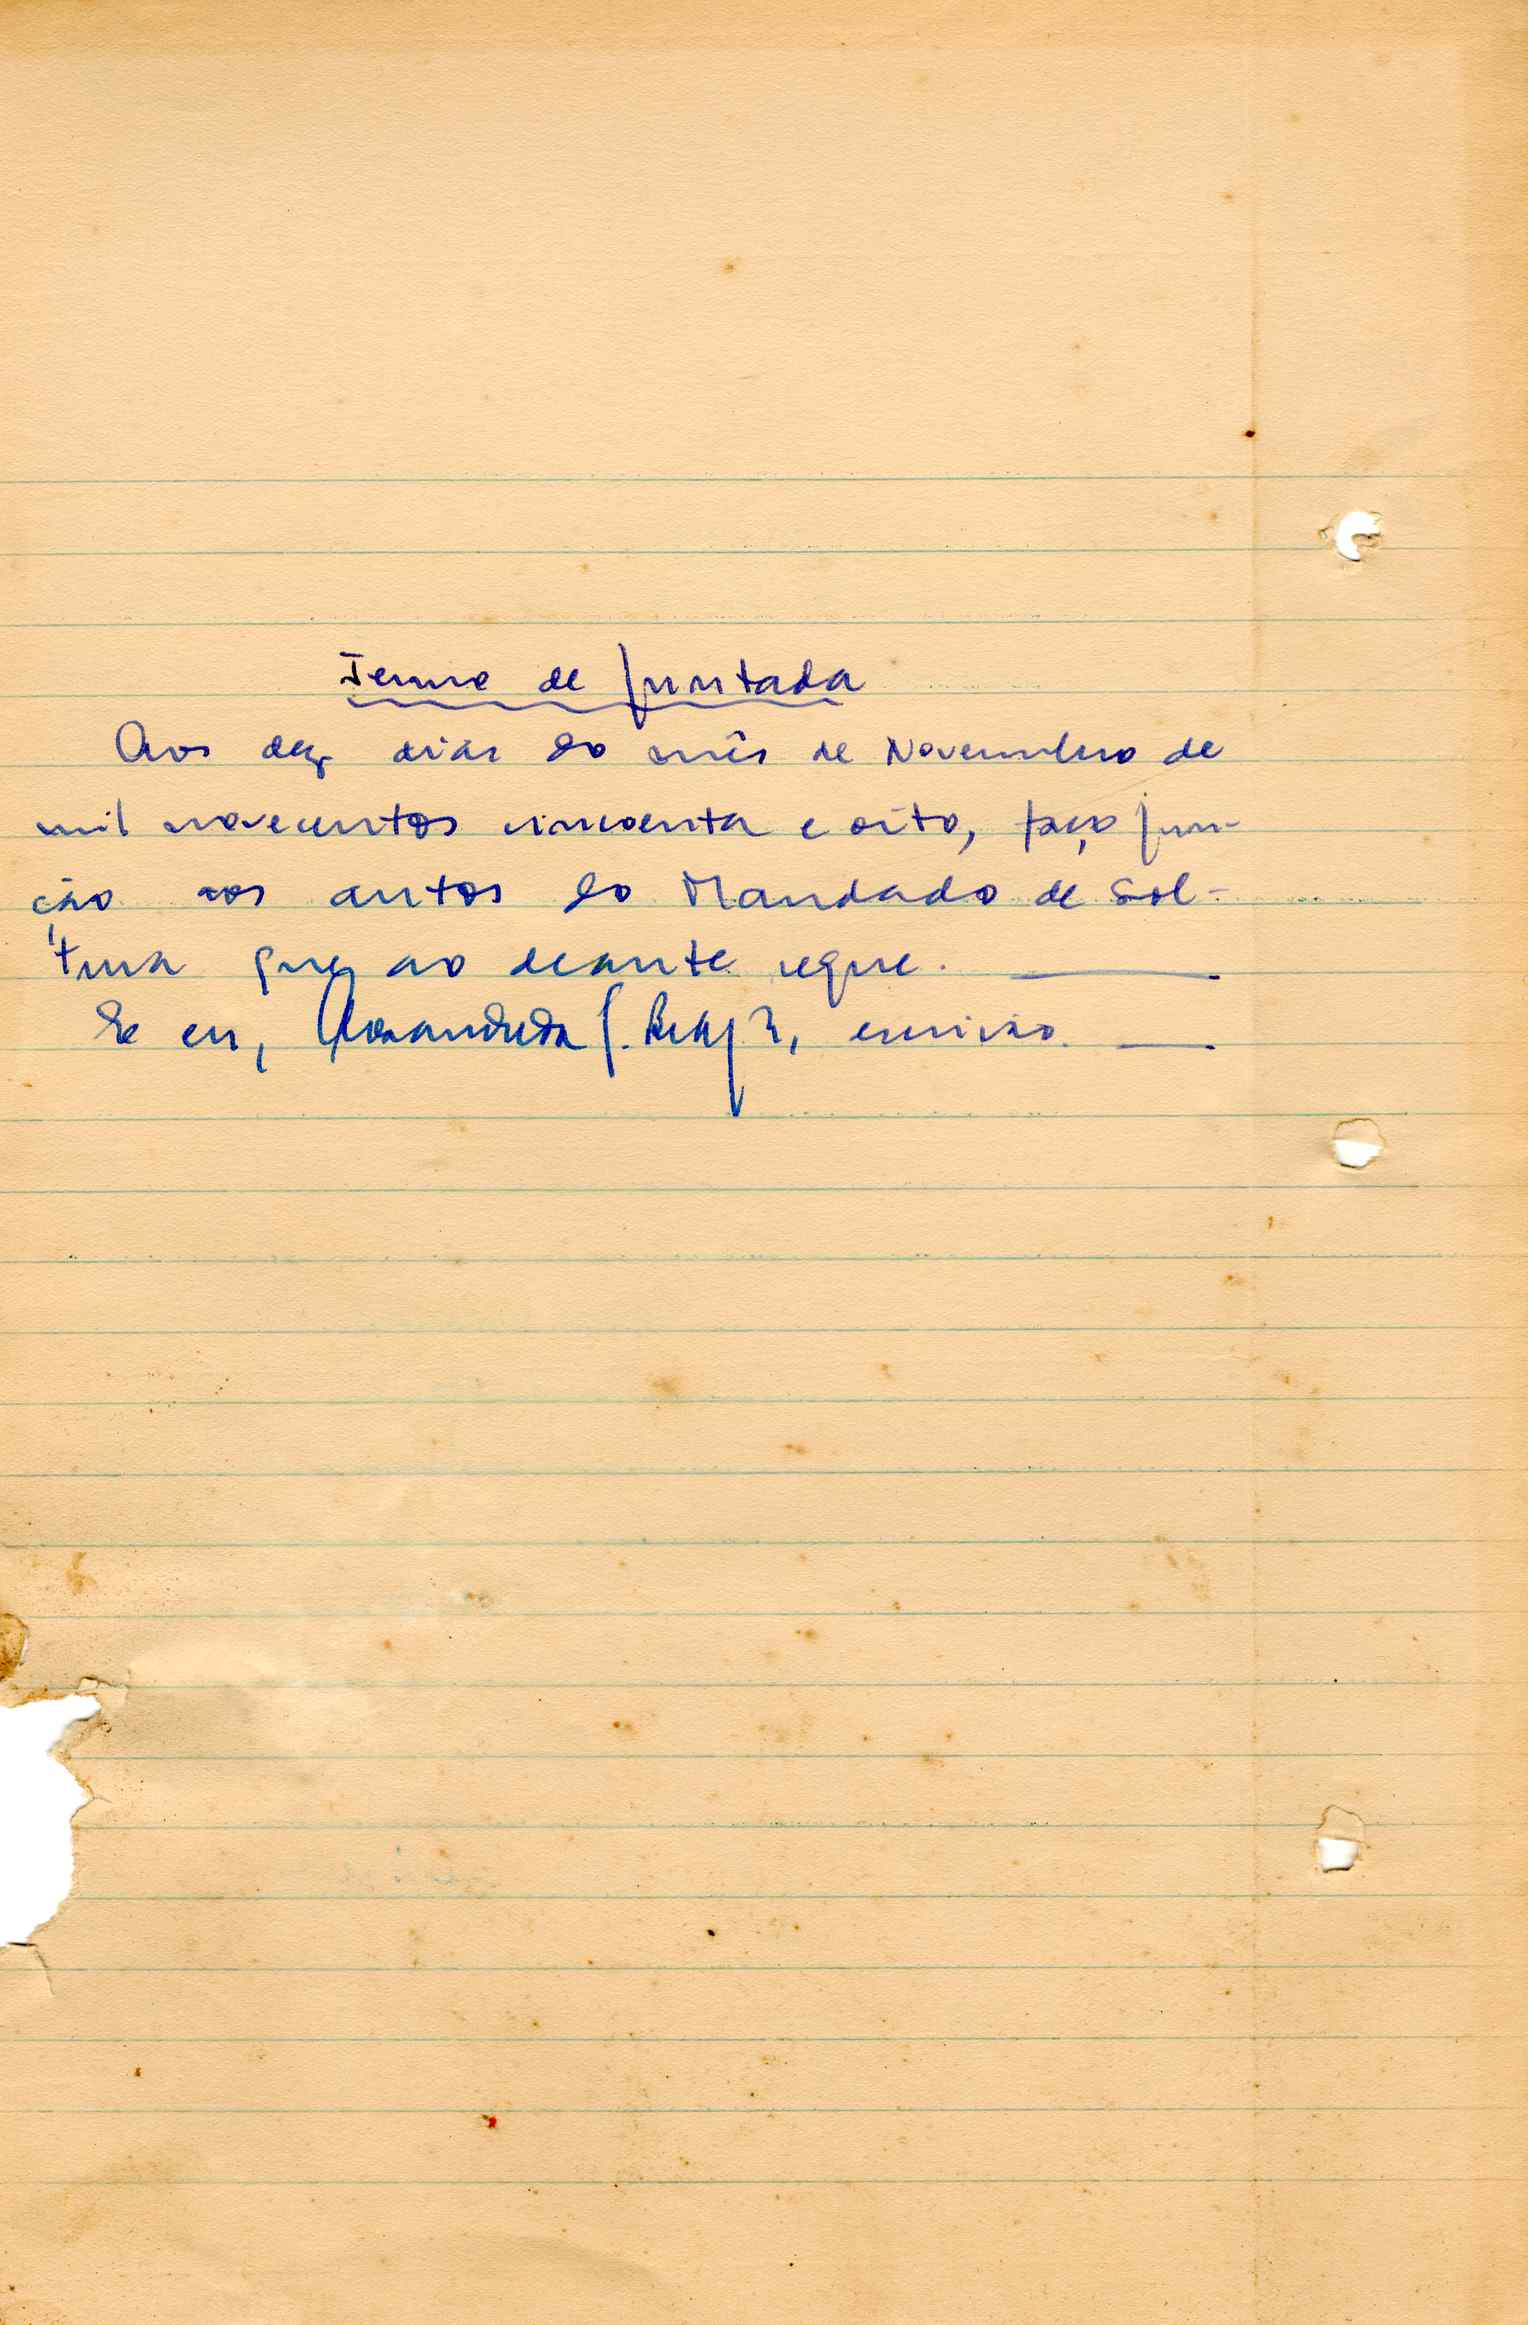 Termo de Juntada
Aos dez dias do mês de Novembro de
mil novecentos cincoenta e oito, faço jun-
ção aos autos do Mandado de Sol-
tura que ao deante segue.
E eu, escrivão.